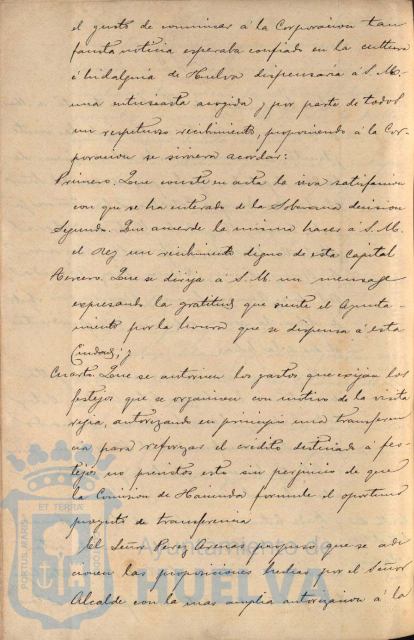 el gusto de comunicar á la Corporación tan
fausta noticia esperaba confiado en la cultura
é hidalguía de Huelva dispensaria á S. M.
una entusiasta acogida, y por parte de todos
un respetuoso recibimiento, proponiendo á la Cor-
poracion se sirviera acordar:
Primero. Que conste en acta la viva satisfacción
con que se ha enterado de la Soberana decision
Segundo. Que acuerde la misma hacer á S. M.
el Rey un recibimiento digno de esta Capital
Tercero. Que se dirija á S. M. un mensage
expresando la gratitud que siente el Ayunta-
miento por la honra que se dispensa á esta
Ciudad; y
Cuarto. Que se autoricen los gastos que exijan los
festejos que se organicen con motivo de la visita
regia, autorizando en principio una transferen
cia para reforzar el crédito destinado á fes-
tejos no previstos esto sin perjuicio de que
la Comision de Hacienda formule el oportuno
proyecto de transferencia
El Señor Perez propuso que se adi
cionen las proposiciones hechas por el Señor
Alcalde con la mas amplia autorizacion á la
ET TERRAE
PORTUS MARIS
Ayuntamiento de
HUELVA